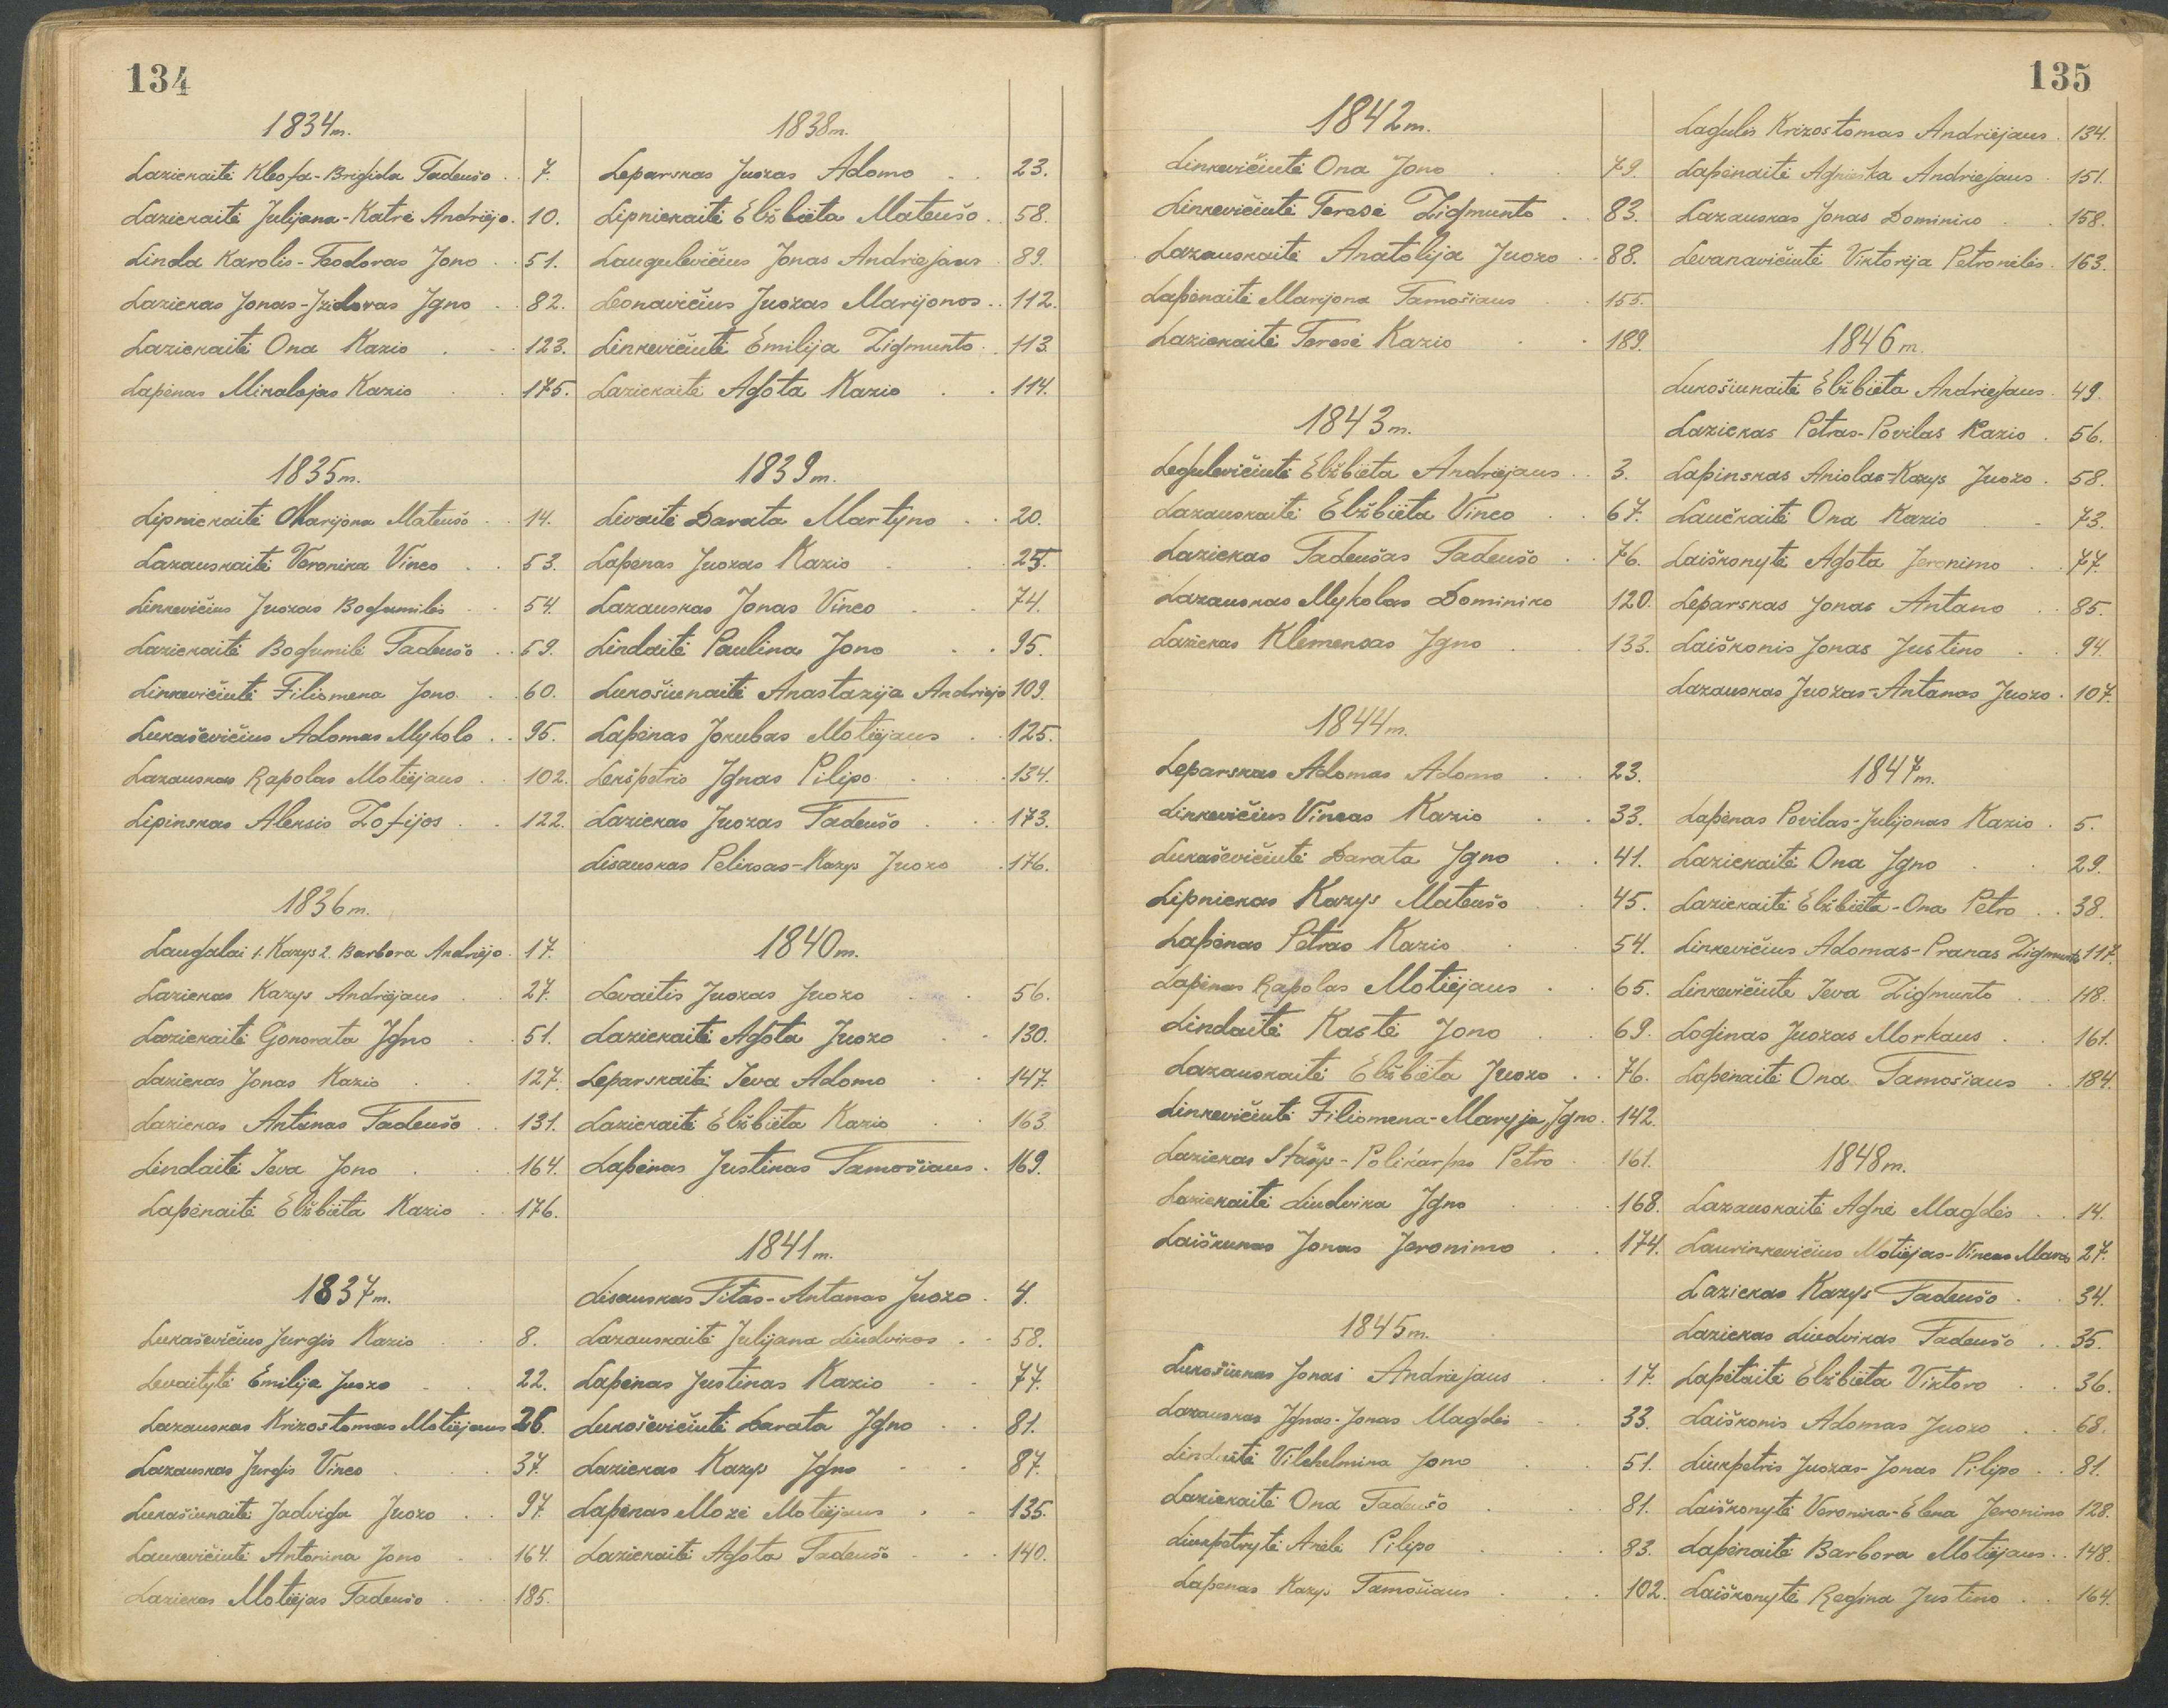 134
1834m.
Lazickaitė Kleofa-Brigida Tadeušo . . 7.
Lazickaitė Julijona-Katrė Andriejo. 10.
Linda Karolis-Teodoras Jono . . 51.
Lazickas Jonas-Izidoras Igno . 82.
Lazickaitė Ona Kazio . . 123.
Lapėnas Mikalojas Kazio . . 175.
1835m.
Lipnickaitė Marijona Mateušo . . 14.
Lazauskaitė Veronika Vinco . . 53.
Linkevičius Juozas Bogumilės . . 54.
Lazickaitė Bogumilė Tadeušo . . 59.
Linkevičiutė Filiomena Jono . . 60.
Lukaševičius Adomas Mykolo . . 95.
Lazauskas Rapolas Motiejaus . . 102.
Lipinskas Aleksis Zofijos . . 122.
1836m.
Laugalai 1. Kazys 2. Barbora Andriejo. 17.
Lazickas Kazys Andriejaus . . 27.
Lazickaitė Gonorata Igno . . 51.
Lazickas Jonas Kazio . . 127.
Lazickas Antanas Tadeušo . . 131.
Lindaitė Ieva Jono . . 164.
Lapėnaitė Elžbieta Kazio . . 176.
1837m.
Lukaševičius Jurgis Kazio . . 8.
Levaitytė Emilija Juozo . . 22.
Lazauskas Krizostomas Motiejaus 26.
Lazauskas Jurgis Vinco . . 37.
Lukašiunaitė Jadviga Juozo . . 97.
Laukevičiutė Antonina Jono . . 164.
Lazickas Motiejas Tadeušo . . 185.
1838m.
Leparskas Juozas Adomo . . 23.
Lipnickaitė Elžbieta Mateušo . . 58.
Laugulevičius Jonas Andriejaus . 89.
Leonavičius Juozas Marijonos . . 112.
Linkevičiutė Emilija Zigmunto . . 113.
Lazickaitė Agota Kazio . . 114.
1839m.
Livaitė Darata Martyno . . 20.
Lapėnas Juozas Kazio . . 25.
Lazauskas Jonas Vinco . . 74.
Lindaitė Paulina Jono . . 95.
Lukošiunaitė Anastazija Andriejo 109.
Lapėnas Jokubas Motiejaus . . 125.
Lekšpetris Ignas Pilipo . . 134.
Lazickas Juozas Tadeušo . . 173.
Lisauskas Feliksas-Kazys Juozo . 176.
1840m.
Levaitis Juozas Juozo . . 56.
Lazickaitė Agota Juozo . . 130.
Leparskaitė Ieva Adomo . . 147.
Lazickaitė Elžbieta Kazio . . 163.
Lapėnas Justinas Tamošiaus . 169.
1841m.
Lisauskas Titas-Antanas Juozo . 4.
Lazauskaitė Julijona Liudvikos . . 58.
Lapėnas Justinas Kazio . . 77.
Lukoševičiutė Darata Igno . . 81.
Lazickas Kazys Igno . . 87.
Lapėnas Mozė Motiejaus . . 135.
Lazickaitė Agota Tadeušo . . 140.
135
1842m.
Linkevičiutė Ona Jono . . 79.
Linkevičiutė Teresė Zigmunto . . 83.
Lazauskaitė Anatolija Juozo . . 88.
Lapėnaitė Marijona Tamošiaus . . 155.
Lazickaitė Teresė Kazio . . 189.
1843m.
Legulevičiutė Elžbieta Andriejaus . . 3.
Lazauskaitė Elžbieta Vinco . . 67.
Lazickas Tadeušas Tadeušo . . 76.
Lazauskas Mykolas Dominiko 120.
Lazickas Klemensas Igno . . 133.
1844m.
Leparskas Adomas Adomo . . 23.
Linkevičius Vincas Kazio . . 33.
Lukaševičiutė Darata Igno . . 41.
Lipnickas Kazys Mateušo . . 45.
Lapėnas Petras Kazio . . 54.
Lapėnas Rapolas Motiejaus . . 65.
Lindaitė Kastė Jono . . 69.
Lazauskaitė Elžbieta Juozo . . 76.
Linkevičiutė Filiomena-Maryja Igno. 142.
Lazickas Stasys-Polikarpas Petro . 161.
Lazickaitė Liudvika Igno . . 168.
Laiškunas Jonas Jeronimo . . 174.
1845m.
Lukošiunas Jonas Andriejaus . . 17.
Lazauskas Ignas-Jonas Magdės . 33.
Lindaitė Vilehelmina Jono . . 51.
Lazickaitė Ona Tadeušo . . 81.
Liukpetrytė Anelė Pilipo . . 83.
Lapėnas Kazys Tamošiaus . . 102.
Lagulis Krizostomas Andriejaus . 134.
Lapėnaitė Agnieška Andriejaus . 151.
Lazauskas Jonas Dominiko . . 158.
Levanavičiutė Viktorija Petronėlės . 163.
1846m.
Lukošiunaitė Elžbieta Andriejaus . 49.
Lazickas Petras-Povilas Kazio . 56.
Lapinskas Aniolas-Kazys Juozo . 58.
Laučkaitė Ona Kazio . . 73.
Laiškonytė Agota Jeronimo . . 77.
Leparskas Jonas Antano . . 85.
Laiškonis Jonas Justino . . 94.
Lazauskas Juozas-Antanas Juozo . 107.
1847m.
Lapėnas Povilas-Julijonas Kazio . 5.
Lazickaitė Ona Igno . . 29.
Lazickaitė Elžbieta-Ona Petro . . 38.
Linkevičius Adomas-Pranas Zigmunto 117.
Linkevičiutė Ieva Zigmunto . . 118.
Loginas Juozas Morkaus . . 161.
Lapėnaitė Ona Tamošiaus . . 184.
1848m.
Lazauskaitė Agnė Magdės . . 14.
Laurinkevičius Motiejas-Vincas 27.
Lazickas Kazys Tadeušo . . 34.
Lazickas Liudvikas Tadeušo . . 35.
Lapėtaitė Elžbieta Viktoro . . 36.
Laiškonis Adomas Juozo . . 68.
Liukpetris Juozas-Jonas Pilipo . . 81.
Laiškonytė Veronika-Elena Jeronimo 128.
Lapėnaitė Barbora Motiejaus . . 148.
Laiškonytė Regina Justino . . 164.